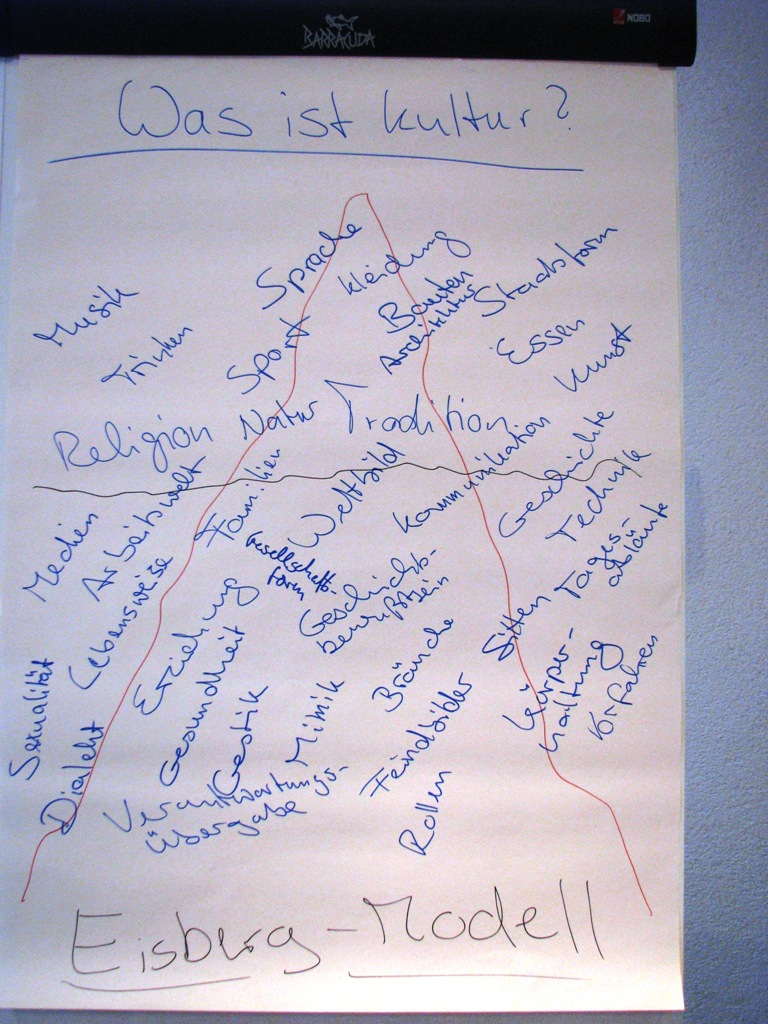 BARRACUDA
NOBO
Was ist kultur?
Sprache
Kleidung
Bauten
Architektur
Staatsform
Musik
Trinken
Sport
Essen
Kunst
Religion
Natur
Tradition
Medien
Arbeitswelt
Familien
Weltbild
Kommunikation
Geschichte
Technik
Lebensweise
Gesellschafts-
form
Geschichts-
bewußtsein
Tages-
abläufe
Sexualität
Erziehung
Sitten
Dialekt
Gesundheit
Gestik
Mimik
Bräuche
Körper-
haltung
Vorfahren
Verantwortungs-
übergabe
Feindbilder
Rollen
Eisberg-Modell